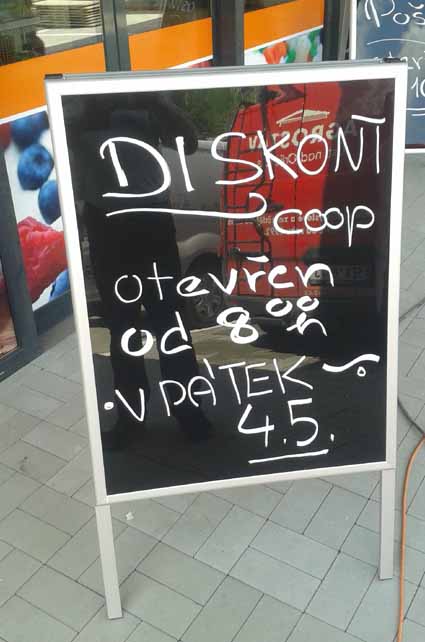 DISKONT
coop
otevřen
od 8⁰⁰ h
· V PÁTEK
4.5.